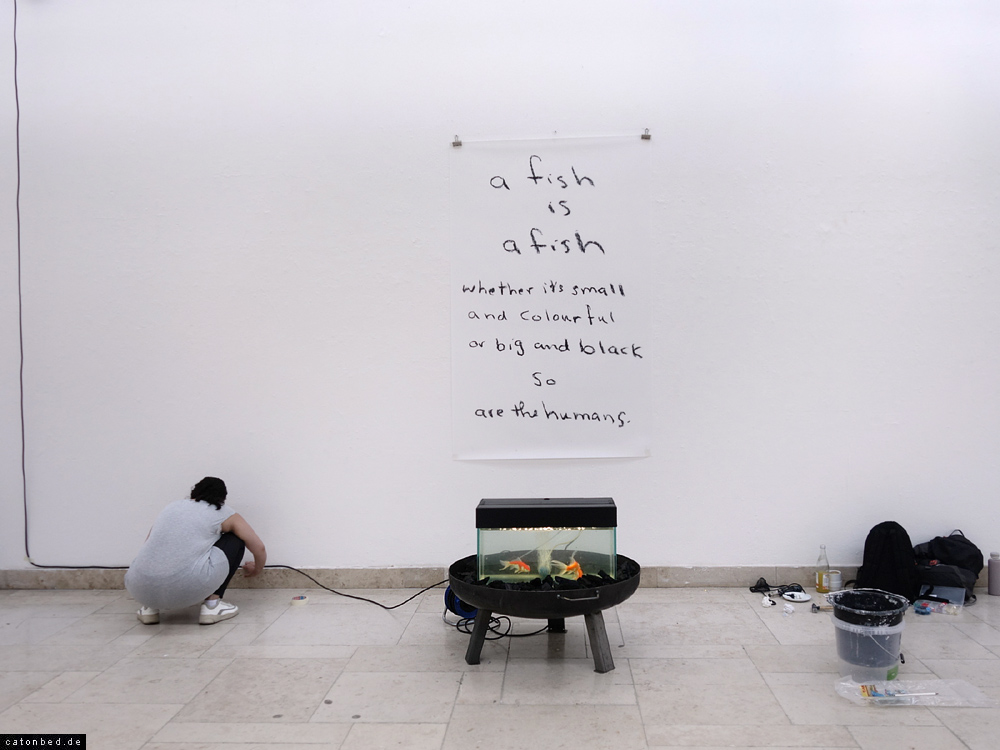 a fish
is
a fish
whether it's small
and colourful
or big and black
so
are the humans.
catonbed.de